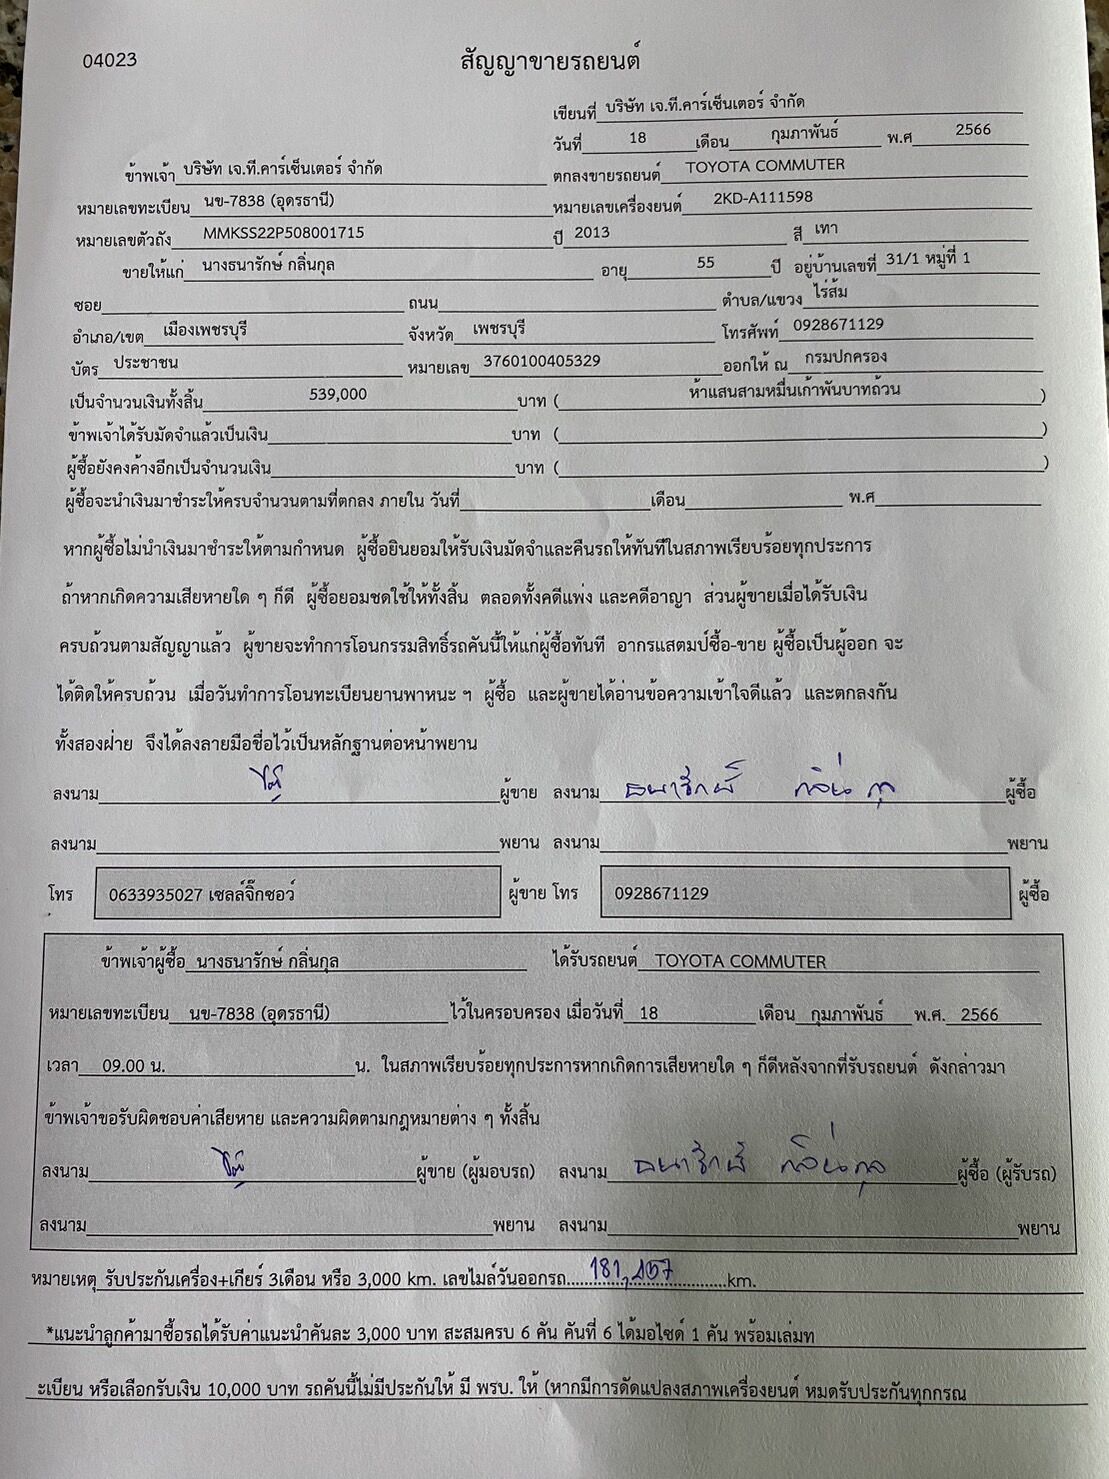 04023
สัญญาขายรถยนต์
เขียนที่ บริษัท เจ.ที.คาร์เซ็นเตอร์ จำกัด
วันที่ 18 เดือน กุมภาพันธ์ พ.ศ 2566
ข้าพเจ้า บริษัท เจ.ที.คาร์เซ็นเตอร์ จำกัด ตกลงขายรถยนต์ TOYOTA COMMUTER
หมายเลขทะเบียน นข-7838 (อุดรธานี) หมายเลขเครื่องยนต์ 2KD-A111598
หมายเลขตัวถัง MMKSS22P508001715 ปี 2013 สี เทา
ขายให้แก่ นางธนารักษ์ กลิ่นกุล อายุ 55 ปี อยู่บ้านเลขที่ 31/1 หมู่ที่ 1
ซอย ถนน ตำบล/แขวง ไร่ส้ม
อำเภอ/เขต เมืองเพชรบุรี จังหวัด เพชรบุรี โทรศัพท์ 0928671129
บัตร ประชาชน หมายเลข 3760100405329 ออกให้ ณ กรมปกครอง
เป็นจำนวนเงินทั้งสิ้น 539,000 บาท ( ห้าแสนสามหมื่นเก้าพันบาทถ้วน )
ข้าพเจ้าได้รับมัดจำแล้วเป็นเงิน บาท ( )
ผู้ซื้อยังคงค้างอีกเป็นจำนวนเงิน บาท ( )
ผู้ซื้อจะนำเงินมาชำระให้ครบจำนวนตามที่ตกลง ภายใน วันที่ เดือน พ.ศ
หากผู้ซื้อไม่นำเงินมาชำระให้ตามกำหนด ผู้ซื้อยินยอมให้รับเงินมัดจำและคืนรถให้ทันทีในสภาพเรียบร้อยทุกประการ
ถ้าหากเกิดความเสียหายใด ๆ ก็ดี ผู้ซื้อยอมชดใช้ให้ทั้งสิ้น ตลอดทั้งคดีแพ่ง และคดีอาญา ส่วนผู้ขายเมื่อได้รับเงิน
ครบถ้วนตามสัญญาแล้ว ผู้ขายจะทำการโอนกรรมสิทธิ์รถคันนี้ให้แก่ผู้ซื้อทันที อากรแสตมป์ซื้อ-ขาย ผู้ซื้อเป็นผู้ออก จะ
ได้ติดให้ครบถ้วน เมื่อวันทำการโอนทะเบียนยานพาหนะ ฯ ผู้ซื้อ และผู้ขายได้อ่านข้อความเข้าใจดีแล้ว และตกลงกัน
ทั้งสองฝ่าย จึงได้ลงลายมือชื่อไว้เป็นหลักฐานต่อหน้าพยาน
ลงนาม ผู้ขาย ลงนาม ธนารักษ์ กลิ่นกุล ผู้ซื้อ
ลงนาม พยาน ลงนาม พยาน
โทร 0633935027 เซลล์จิ๊กซอว์ ผู้ขาย โทร 0928671129 ผู้ซื้อ
ข้าพเจ้าผู้ซื้อ นางธนารักษ์ กลิ่นกุล ได้รับรถยนต์ TOYOTA COMMUTER
หมายเลขทะเบียน นข-7838 (อุดรธานี) ไว้ในครอบครอง เมื่อวันที่ 18 เดือน กุมภาพันธ์ พ.ศ. 2566
เวลา 09.00 น. น. ในสภาพเรียบร้อยทุกประการหากเกิดการเสียหายใด ๆ ก็ดีหลังจากที่รับรถยนต์ ดังกล่าวมา
ข้าพเจ้าขอรับผิดชอบค่าเสียหาย และความผิดตามกฎหมายต่าง ๆ ทั้งสิ้น
ลงนาม ผู้ขาย (ผู้มอบรถ) ลงนาม ธนารักษ์ กลิ่นกุล ผู้ซื้อ (ผู้รับรถ)
ลงนาม พยาน ลงนาม พยาน
หมายเหตุ รับประกันเครื่อง+เกียร์ 3เดือน หรือ 3,000 km. เลขไมล์วันออกรถ.....181,157.....km.
*แนะนำลูกค้ามาซื้อรถได้รับค่าแนะนำคันละ 3,000 บาท สะสมครบ 6 คัน คันที่ 6 ได้มอไซด์ 1 คัน พร้อมเล่มท
ะเบียน หรือเลือกรับเงิน 10,000 บาท รถคันนี้ไม่มีประกันให้ มี พรบ. ให้ (หากมีการดัดแปลงสภาพเครื่องยนต์ หมดรับประกันทุกกรณ